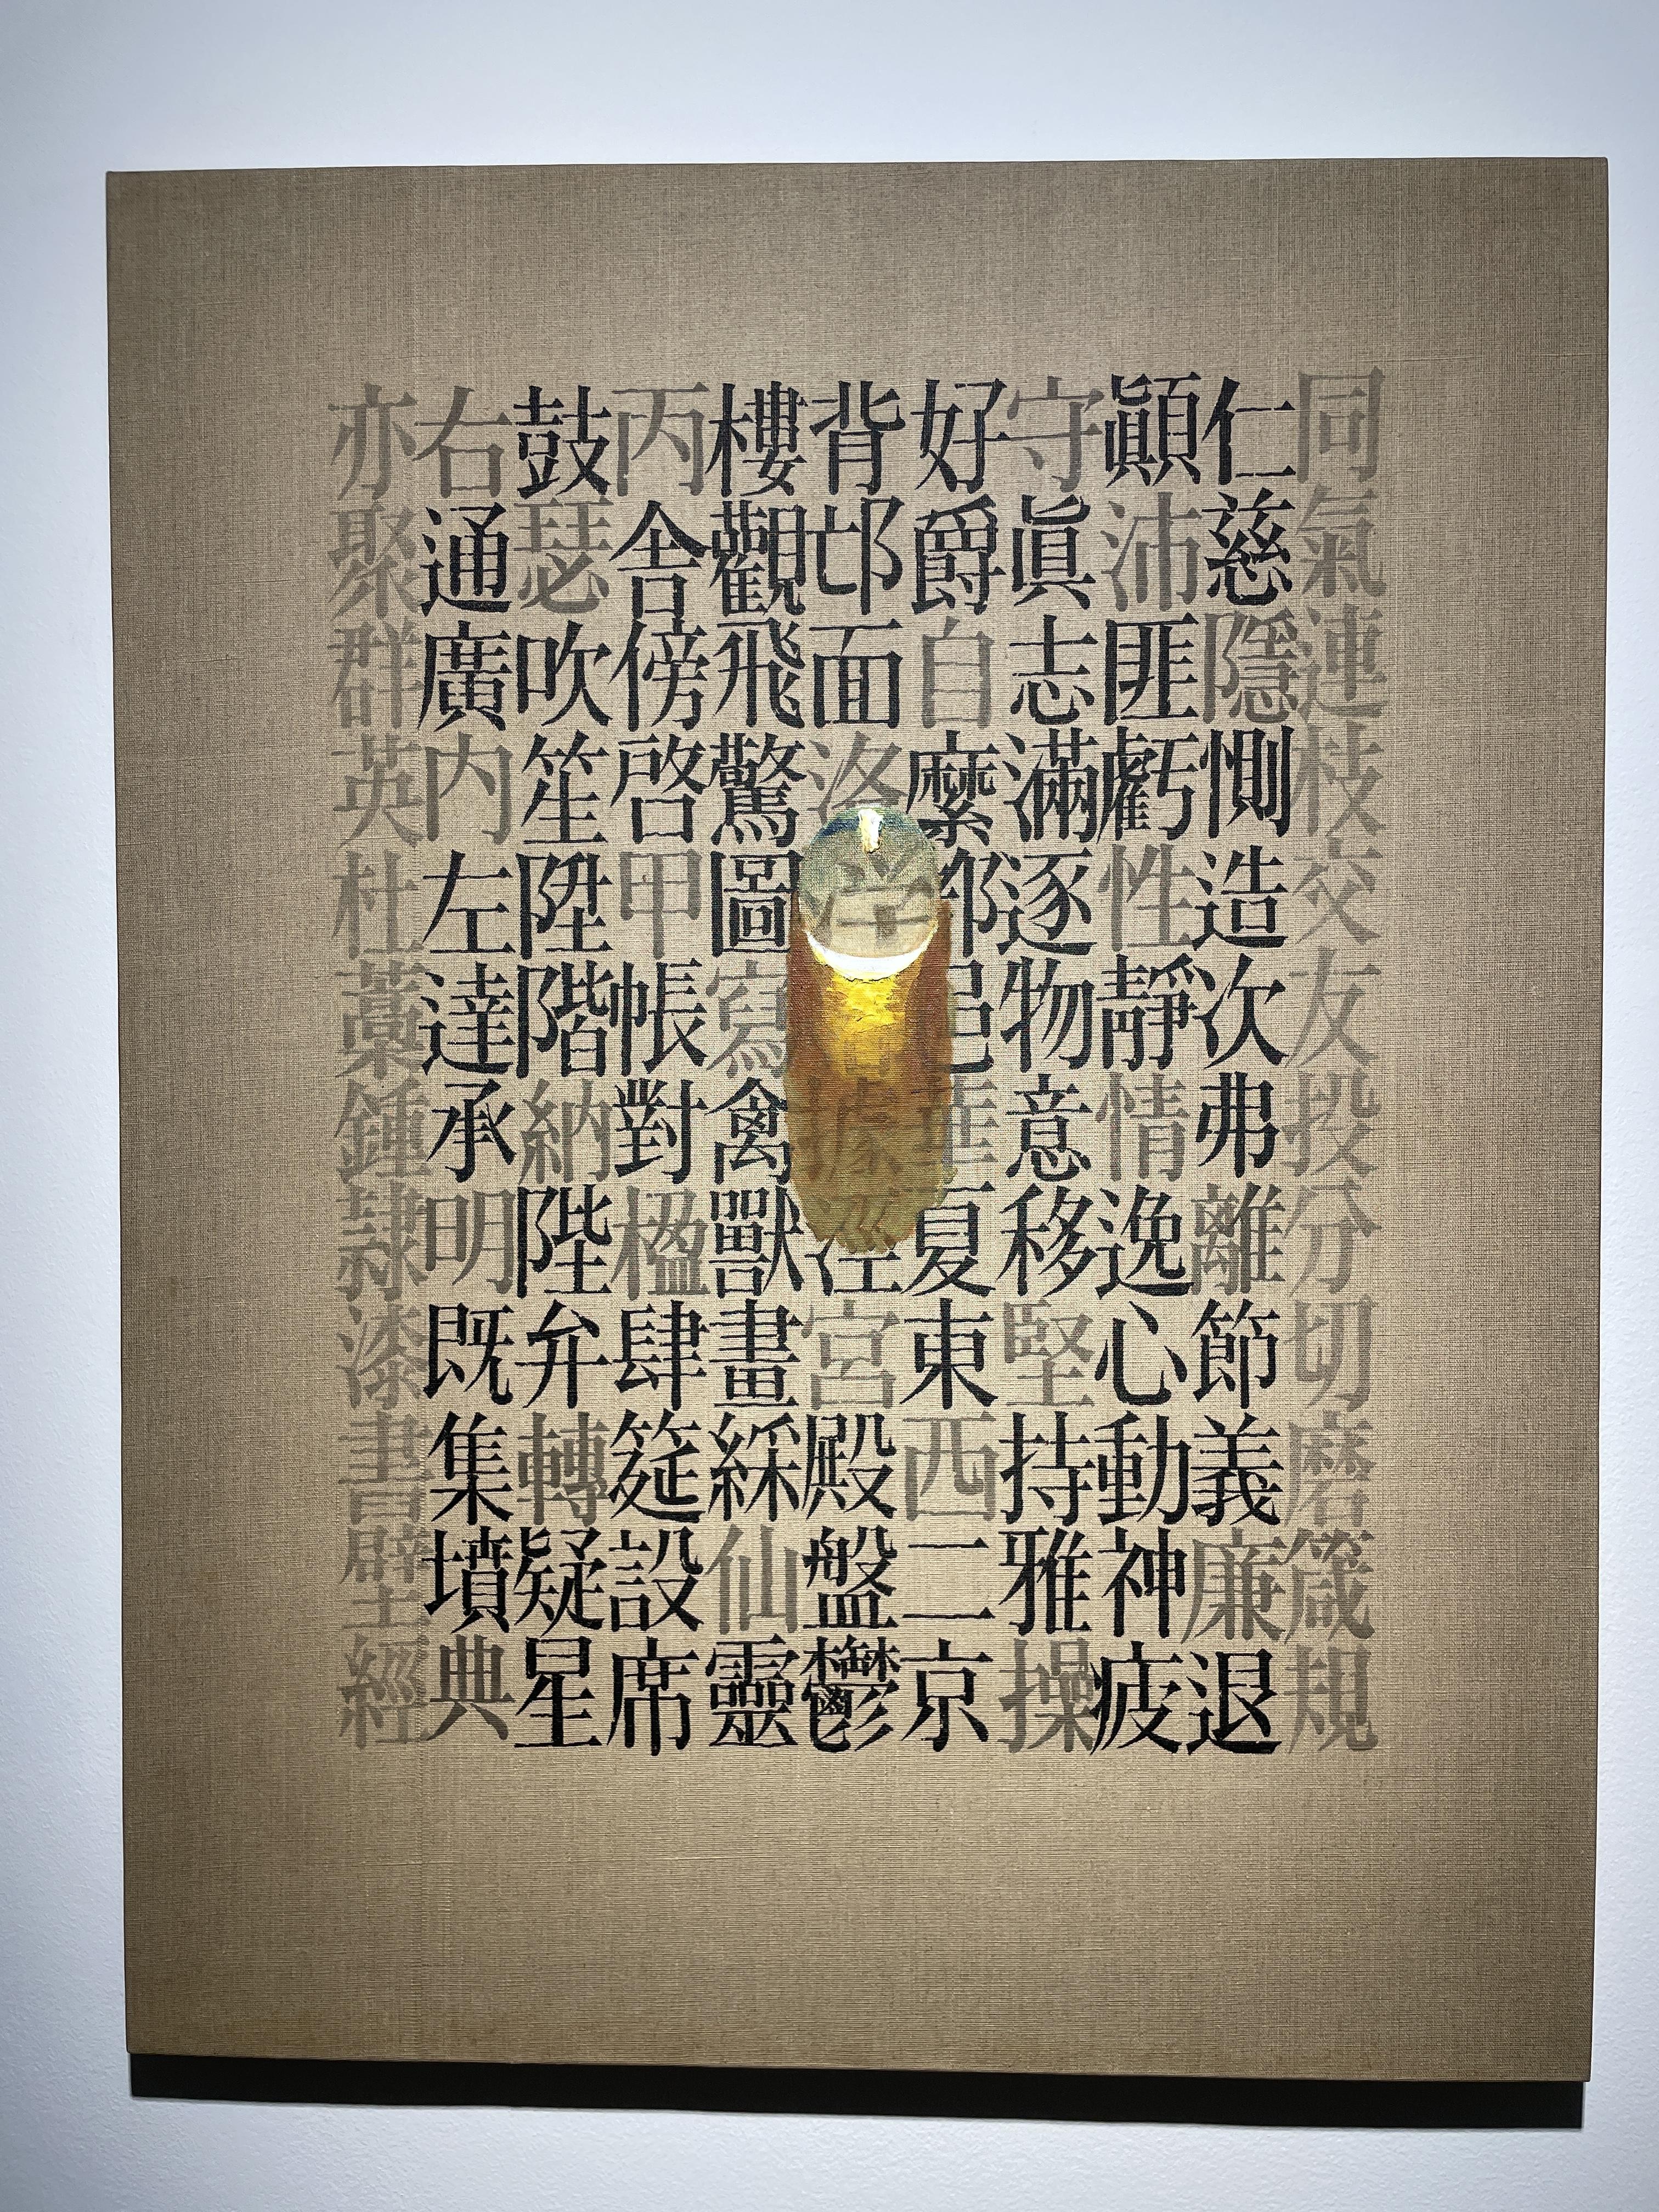 同氣連枝交友投分切磨箴規
仁慈隱惻造次弗離節義廉退
顚沛匪虧性靜情逸心動神疲
守眞志滿逐物意移堅持雅操
好爵自縻都邑華夏東西二京
背邙面洛浮據涇宮殿盤鬱
樓觀飛驚圖寫禽獸畫綵仙靈
丙舍傍啓甲帳對楹肆筵設席
鼓瑟吹笙陞階納陛弁轉疑星
右通廣内左達承明既集墳典
亦聚群英杜藁鍾隸漆書壁經